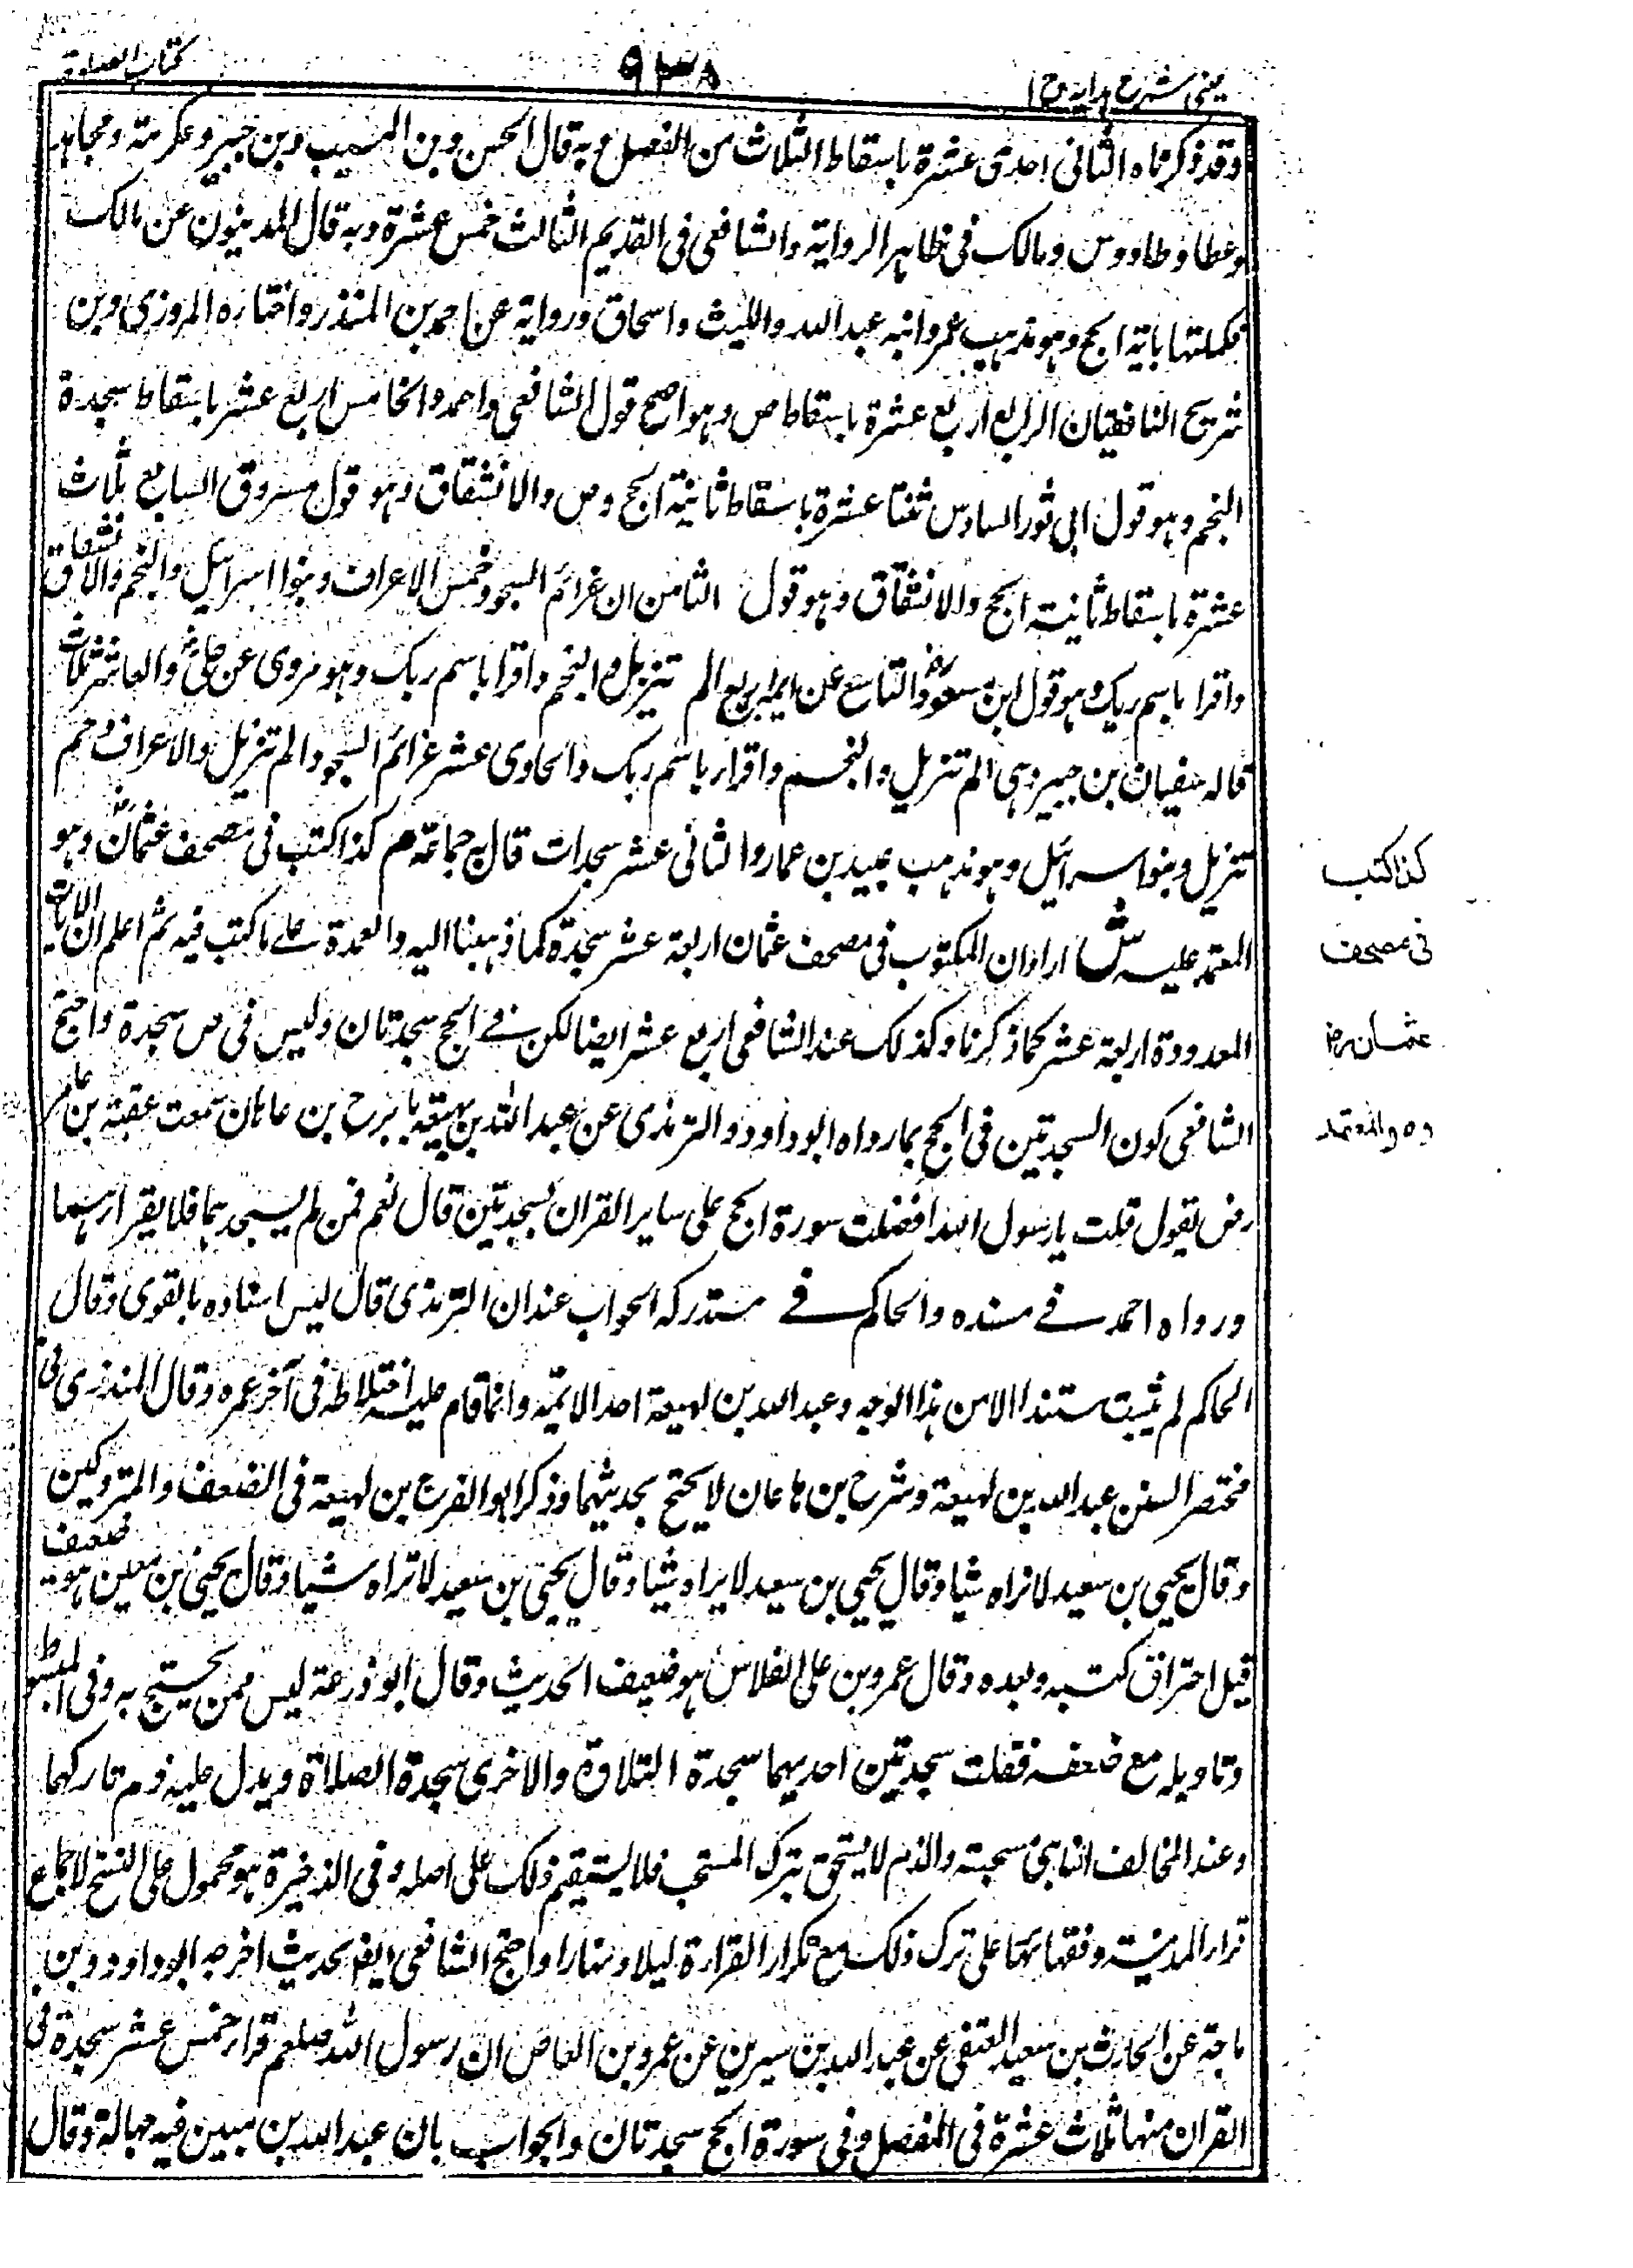 عینی شرح ہدایہ ج ا
۹۳۸
کتاب الصلوۃ
وقد ذکرناہ الثانی احدی عشرۃ باسقاط الثلاث من الفصل وبہ قال الحسن وبن المسیب وبن جبیر وعکرمۃ ومجاہد
وعطا وطاووس ومالک فی ظاہر الروایۃ والشافعی فی القدیم الثالث خمس عشرۃ وبہ قال المدنیون عن مالک
فکملتہا بایۃ الحج وہو مذہب عمر وابنہ عبداللہ واللیث واسحاق وروایۃ عن احمد بن المنذر واختارہ المروزی وبن
شریح الرابع اربع عشرۃ باسقاط ص وہو اصح قول الشافعی واحمد والخامس اربع عشر باسقاط سجدۃ
النجم وہو قول ابی ثور السادس ثنتا عشرۃ باسقاط ثانیۃ الحج وص والانشقاق وہو قول مسروق السابع ثلاث
عشرۃ باسقاط ثانیۃ الحج والانشقاق وہو قول الثامن ان عزائم السجود خمس الاعراف وبنوا اسرائیل والنجم والانشقاق
واقرا باسم ربک وہو قول ابن مسعودؓ والتاسع عن اربع الم تنزیل والنجم واقرا باسم ربک وہو مروی عن علیؓ والعاشر ثلاث
قالہ سفیان بن جبیر وہی الم تنزیل والنجم واقرار باسم ربک والحاوی عشر عزائم السجود الم تنزیل والاعراف وحم
تنزیل وبنوا سرائیل وہو مذہب عبید بن عمار والثانی عشر سجدات قال بہ جماعۃ م کذا کتب فی مصحف عثمانؓ وہو
المعتمد علیہ ش ارادان المکتوب فی مصحف عثمان اربعۃ عشر سجدۃ کما ذہبنا الیہ والعمدۃ علے ما کتب فیہ ثم اعلم ان الایات
المعدودۃ اربعۃ عشر کما ذکرنا وکذلک عند الشافعی اربع عشر ایضا لکن فے الحج سجدتان ولیس فی ص سجدۃ واحتج
الشافعی کون السجدتین فی الحج بما رواہ ابوداود والترمذی عن عبداللہ بن لہیعۃ بن عاہان سمعت عقبۃ بن عامر
رض یقول قلت یا رسول اللہ افضلت سورۃ الحج علی سایر القران بسجدتین قال نعم فمن لم یسجدہما فلا یقرارہما
ورواہ احمد فے مسندہ والحاکم فے مستدرکہ الجواب عندان الترمذی قال لیس اسنادہ بالقوی وقال
الحاکم لم یثبت مستندا الا من ہذا الوجہ وعبداللہ بن لہیعۃ احد الایمۃ وانما قام علیہ اختلاطہ فی آخر عمرہ وقال المنذری فی
مختصر السنن عبداللہ بن لہیعۃ وشرح بن ہاعان لا یحتج بحدیثہما وذکر ابو الفرح بن لہیعۃ فی الضعف والمتروکین
وقال یحیی بن سعید لا نراہ شیا وقال یحیی بن سعید لا یراہ شیا وقال یحیی بن سعید لا تراہ شیا وقال یحیی بن معین ہو ضعیف
قبل احتراق کتبہ وبعدہ وقال عمرو بن علی الفلاس ہو ضعیف الحدیث وقال ابو ذرعۃ لیس ممن یحتج بہ وفی المبسوط
وتاویلہ مع ضعفہ فضلت سجدتین احدیہما سجدۃ التلاوۃ والاخری سجدۃ الصلاۃ ویدل علیہ ذم تارکہما
وعند المخالف والذم لا یستحق بترک المستحب فلا یستقیم ذلک علی اصلہ وفی الذخیرۃ ہو محمول علی النسخ لاجماع
قرار المدینۃ وفقہائہا علی ترک ذلک مع تکرار القرارۃ لیلا ونہارا واحتج الشافعی ایض بحدیث اخرجہ ابوداود وبن
ماجۃ عن الحارث بن سعید العتقی عن عبداللہ بن سیرین عن عمرو بن العاص ان رسول اللہ صلعم قرار خمس عشر سجدۃ فی
القران منہا ثلاث عشرۃ فی المفصل وفی سورۃ الحج سجدتان والجواب بان عبداللہ بن مبین فیہ جہالۃ وقال
کذا کتب
فی مصحف
عثمان رض
وہ والمعتمد